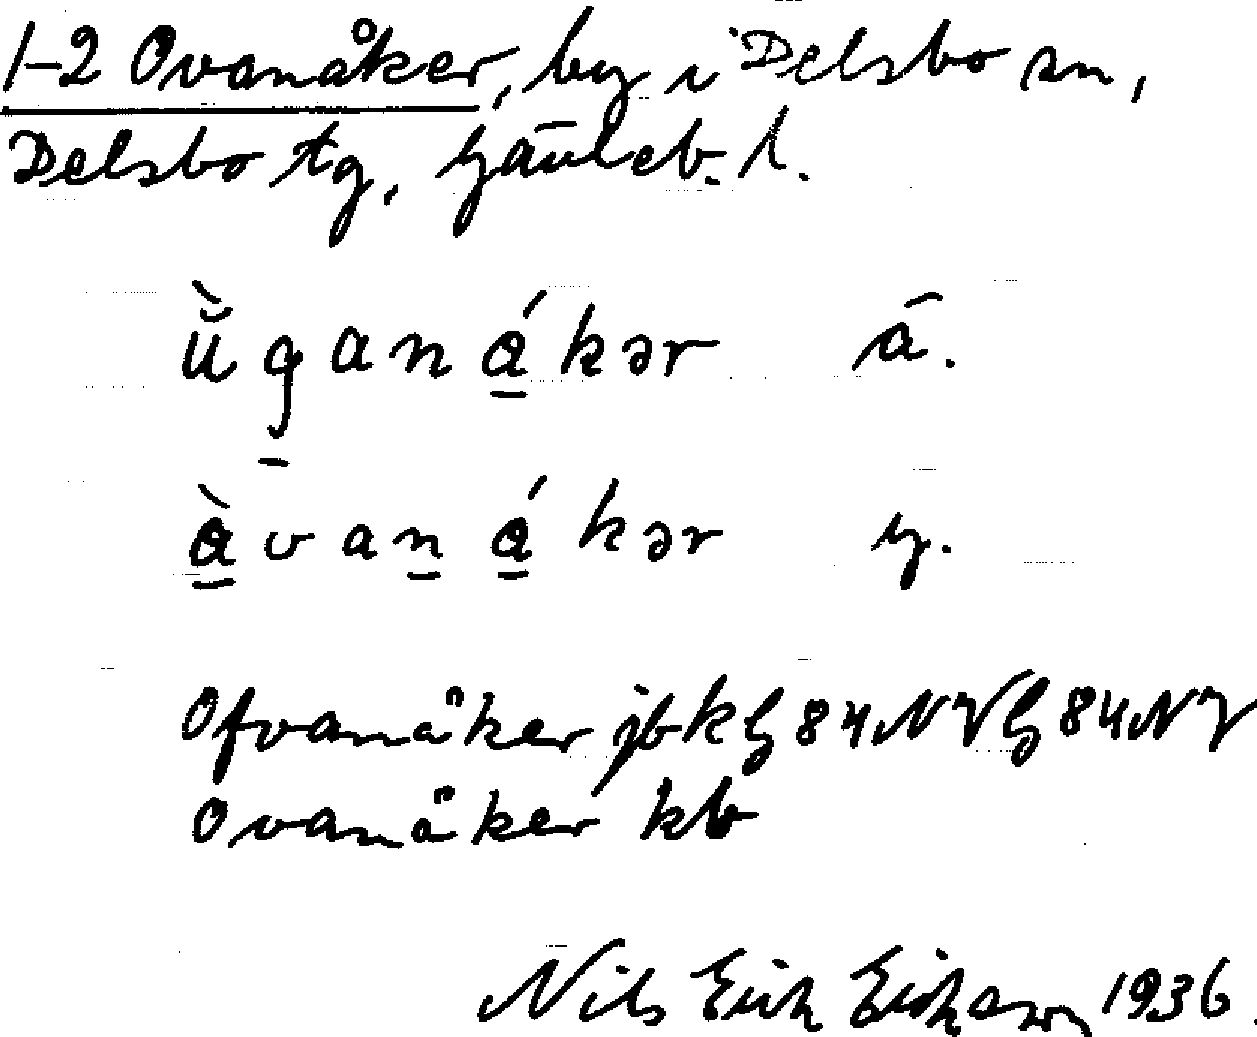 1-2 Ovanåker, by i Delsbo sn,
Delsbo tg, Gävleb. l.
ùganákər ä.
àvanákər y.
Ofvanåker jbk G 84 NV G 84 NV
Ovanåker kb
Nils Erik Erikson 1936